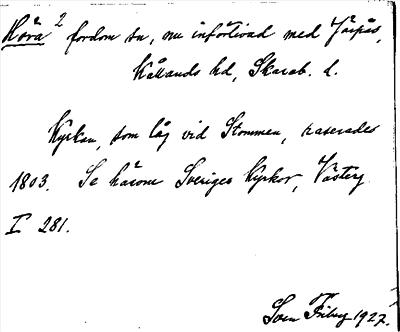 Håra² fordom sn, nu införlivad med Järpås,
Kållands hd, Skarab. l.
Kyrkan, som låg vid Stommen, raserades
1803. Se härom Sveriges Kyrkor, Västerg
I 281.
Sven Friberg 1927.